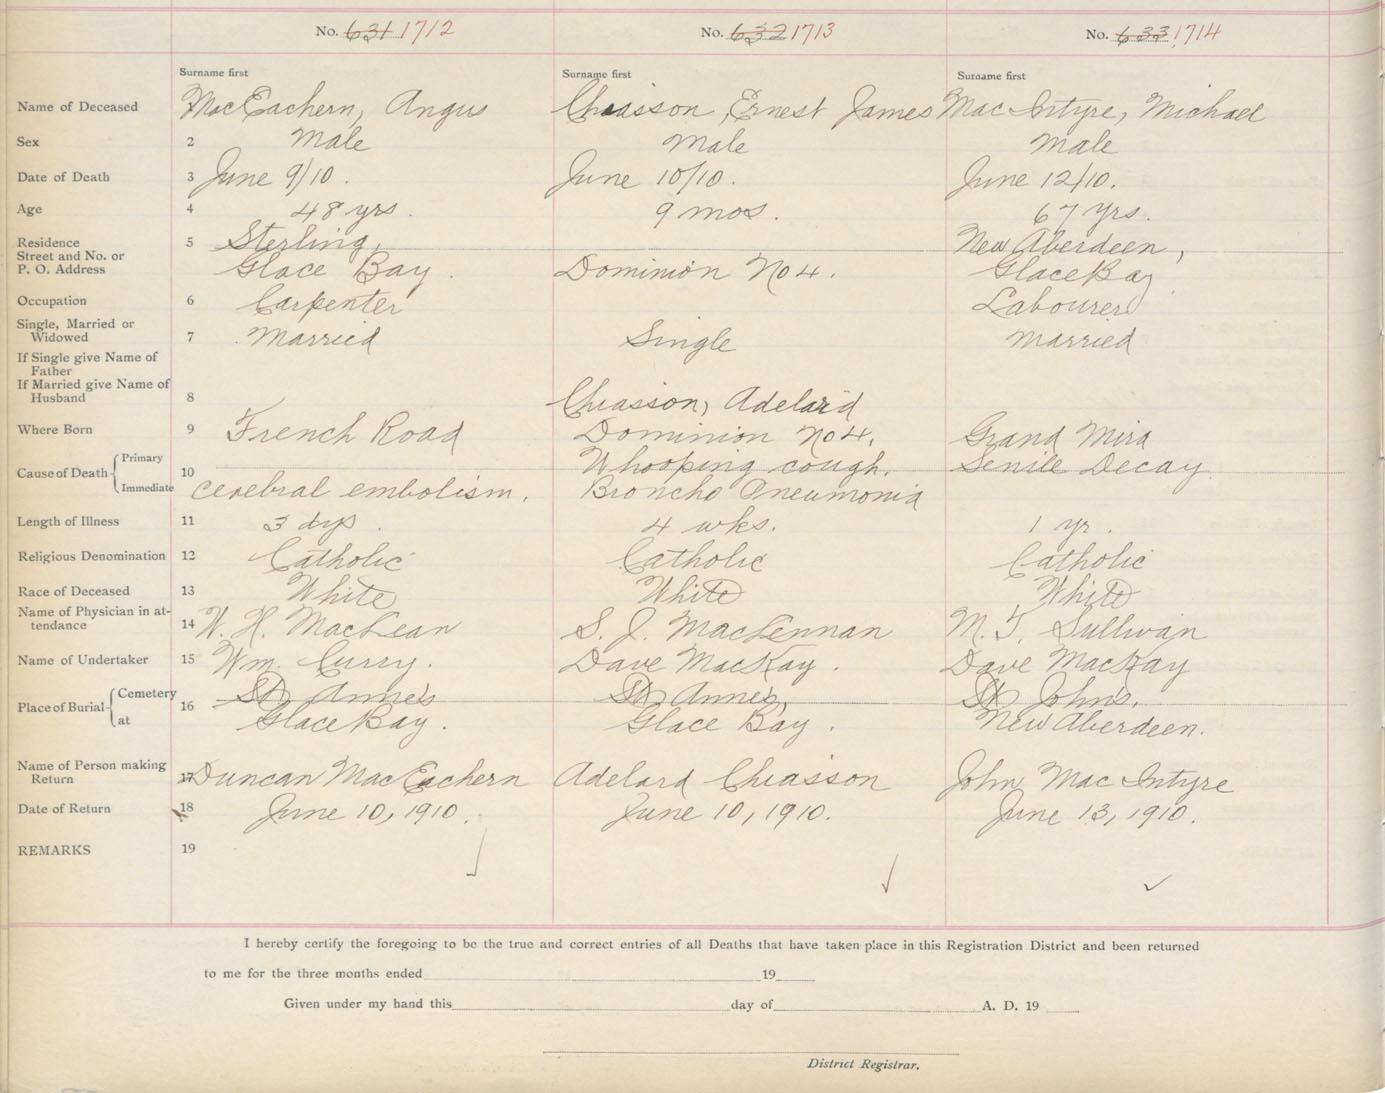 No. 631 1712 No. 632 1713 No. 633 1714
Surname first Surname first Surname first
Name of Deceased MacEachern, Angus Chiasson, Ernest James MacIntyre, Michael
Sex 2 Male Male Male
Date of Death 3 June 9/10. June 10/10. June 12/10.
Age 4 48 yrs. 9 mos. 67 yrs.
Residence 5 Sterling, New Aberdeen,
Street and No. or
P. O. Address Glace Bay. Dominion No 4. Glace Bay
Occupation 6 Carpenter Labourer
Single, Married or
Widowed 7 Married Single Married
If Single give Name of
Father
If Married give Name of
Husband 8 Chiasson, Adelard
Where Born 9 French Road Dominion No 4. Grand Mira
Cause of Death Primary 10 Whooping cough. Senile Decay
Immediate cerebral embolism. Broncho Pneumonia
Length of Illness 11 3 dys. 4 wks. 1 yr.
Religious Denomination 12 Catholic Catholic Catholic
Race of Deceased 13 White White White
Name of Physician in at-
tendance 14 W. H. MacLean S. J. MacLennan M. T. Sullivan
Name of Undertaker 15 Wm. Curry. Dave MacKay. Dave MacKay
Place of Burial Cemetery 16 St Anne's St Anne's, St John's,
at Glace Bay. Glace Bay. New Aberdeen.
Name of Person making
Return 17 Duncan MacEachern Adelard Chiasson John MacIntyre
Date of Return 18 June 10, 1910. June 10, 1910. June 13, 1910.
REMARKS 19
I hereby certify the foregoing to be the true and correct entries of all Deaths that have taken place in this Registration District and been returned
to me for the three months ended 19
Given under my hand this day of A. D. 19
District Registrar.